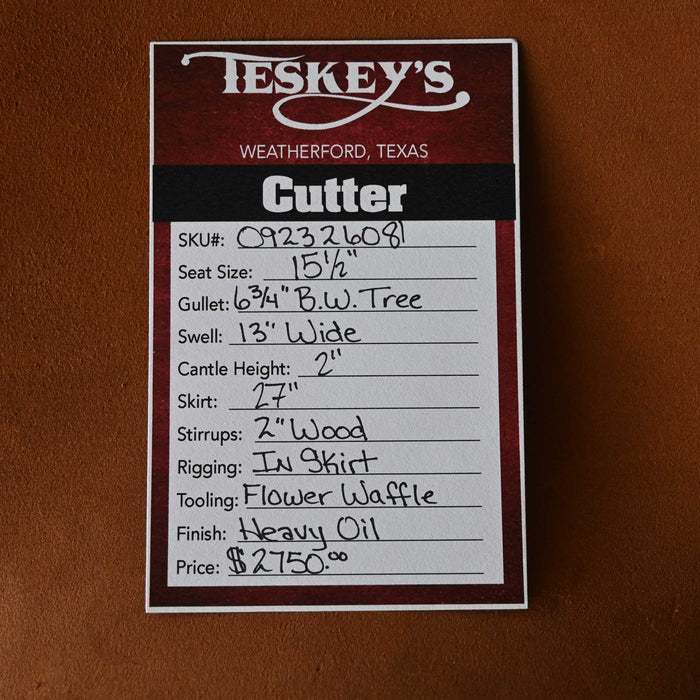 TESKEY'S
WEATHERFORD, TEXAS
Cutter
SKU#: 092326081
Seat Size: 15 1/2"
Gullet: 6 3/4" B.W. Tree
Swell: 13" Wide
Cantle Height: 2"
Skirt: 27"
Stirrups: 2" Wood
Rigging: In Skirt
Tooling: Flower Waffle
Finish: Heavy Oil
Price: $2750.00